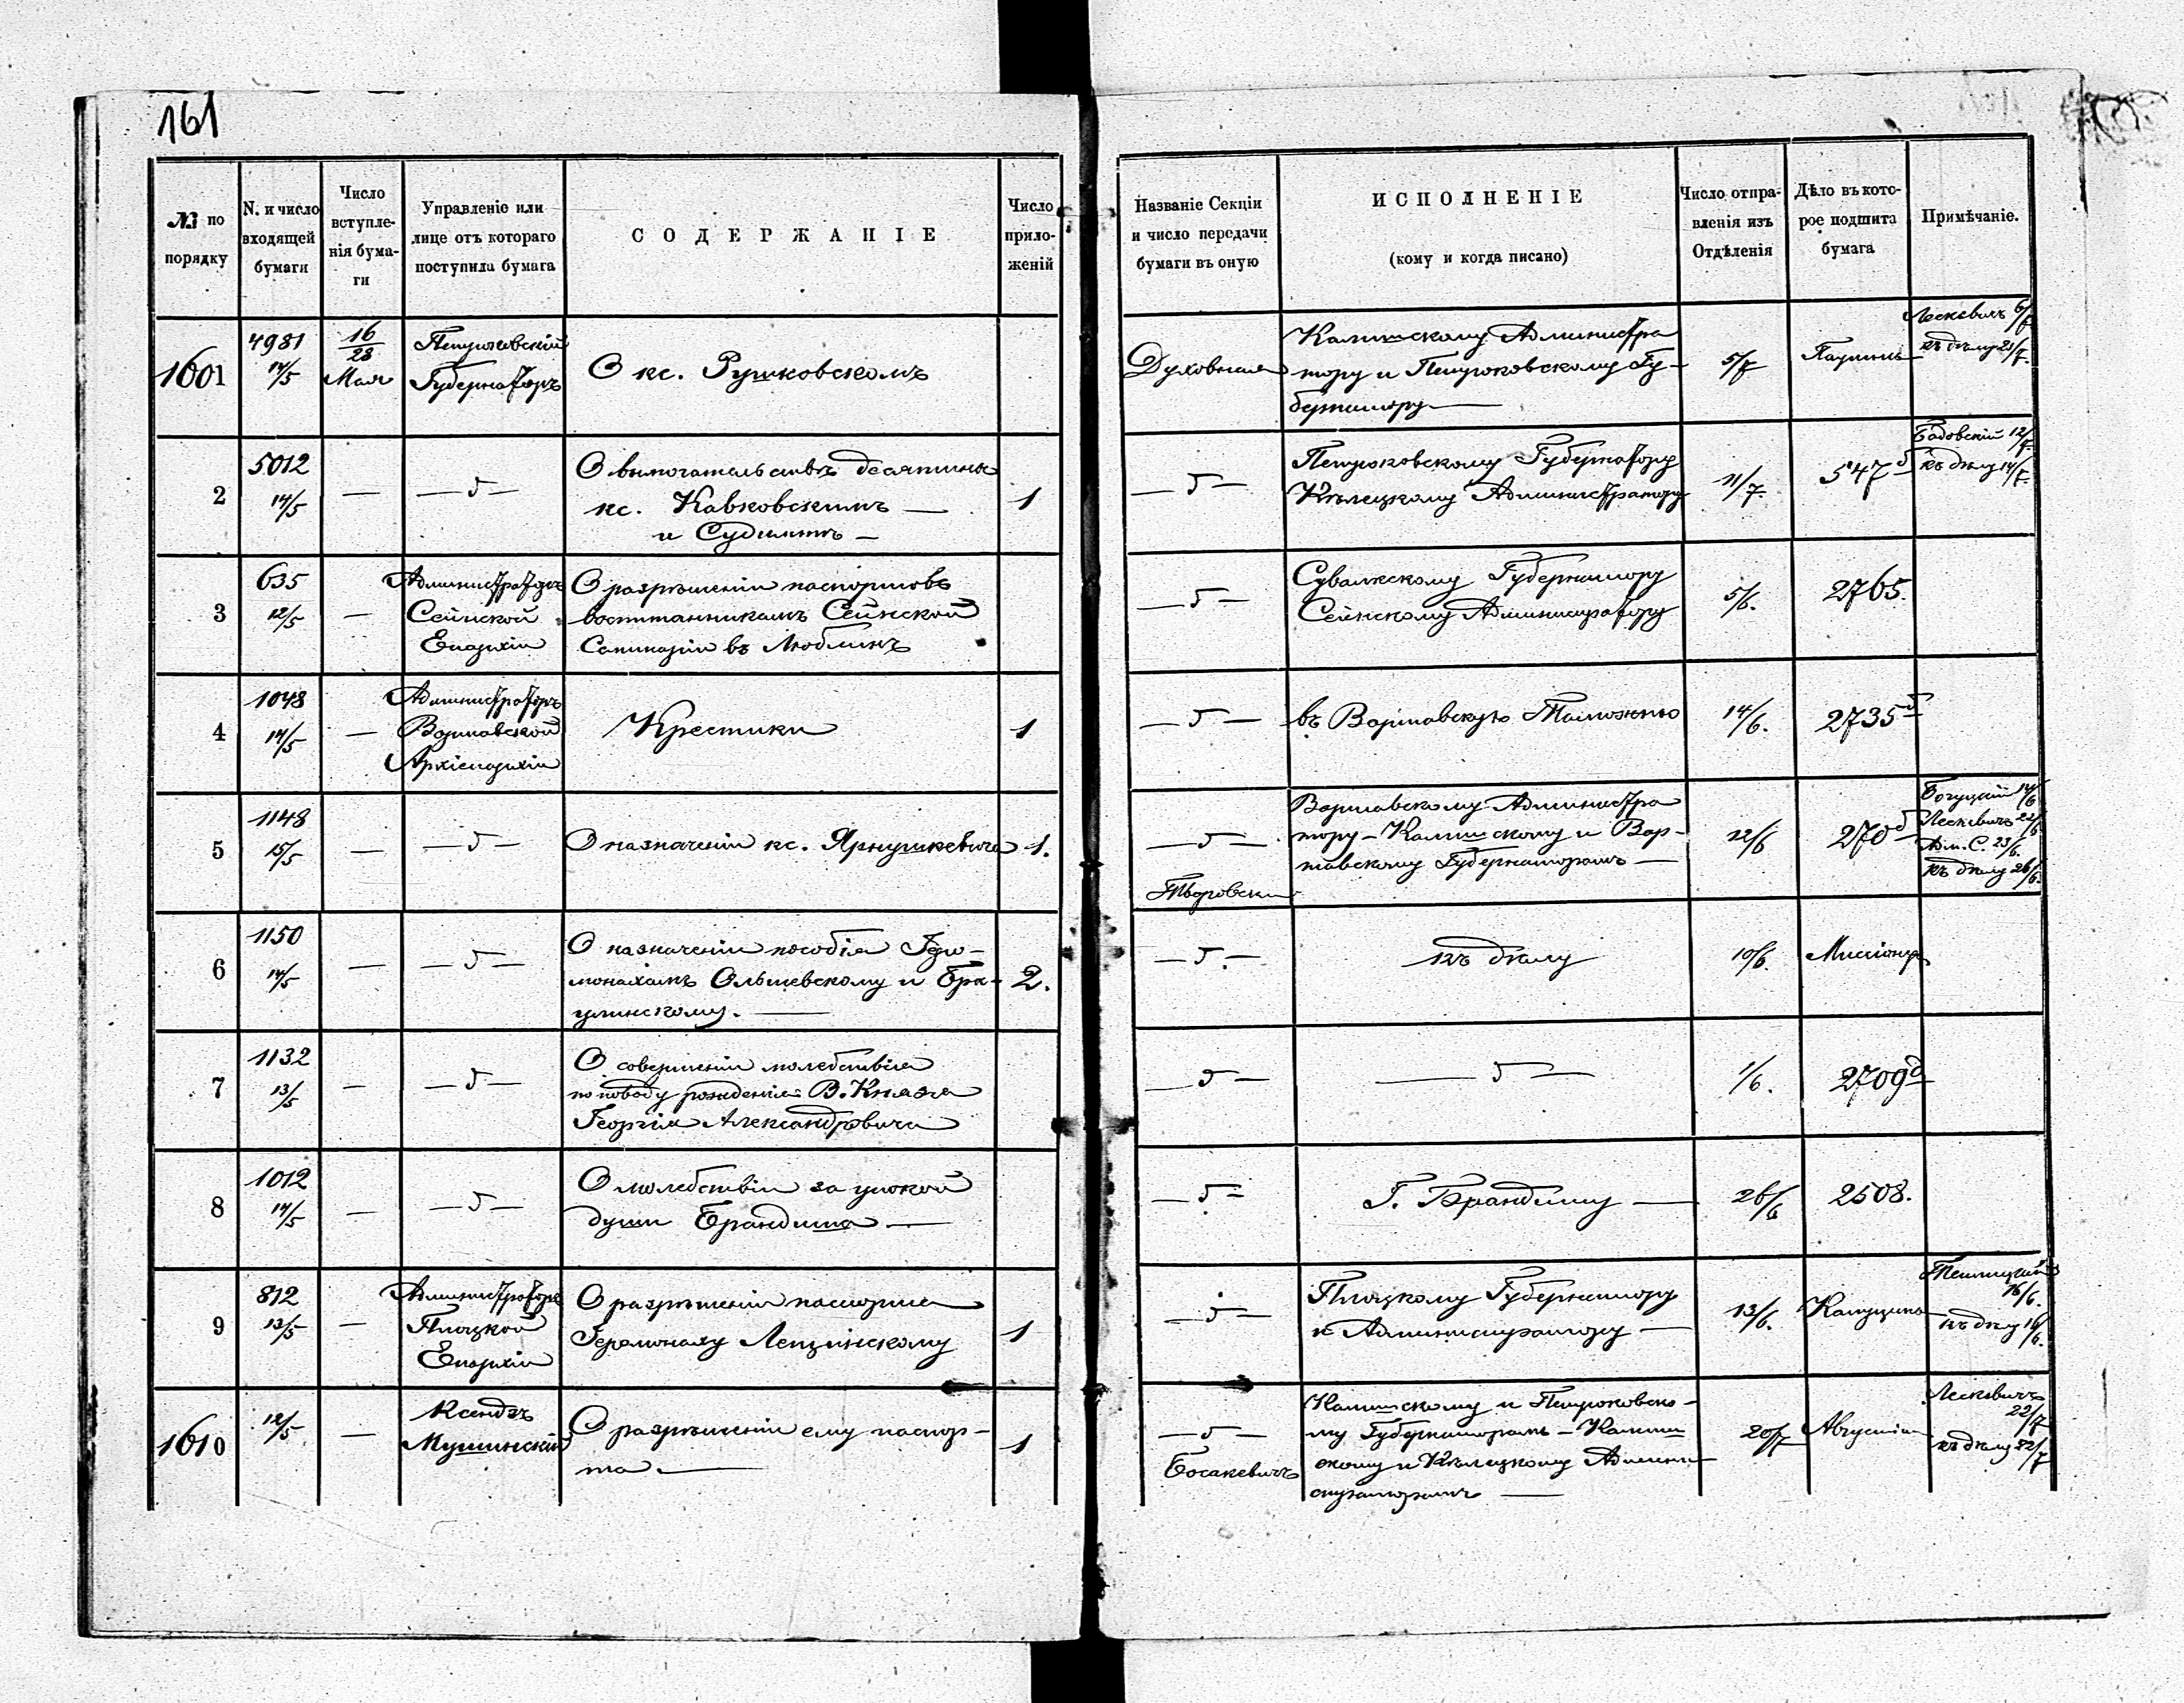 161
№ по порядку
N. и число входящей бумаги
Число вступле-нія бума-ги
Управленіе или лице отъ котораго поступила бумага
СОДЕРЖАНІЕ
Число прило-женій
Названіе Секціи и число передачи бумаги въ оную
ИСПОЛНЕНІЕ
(кому и когда писано)
Число отпра-вленія изъ Отдѣленія
Дѣло въ кото-рое подшита бумага
Примѣчаніе.
1601
4981
14/5
16/28
Мая
Петроковскій
Губернаторъ
О кс. Рушковскомъ
Духовная
Калишскому Администра
тору и Петроковскому Гу-
бернатору
5/7
Лескевичъ 6/7
къ дѣлу 21/7
2
5012
14/5
О вымогательствѣ десятины
кс. Кавковскимъ
и Судимъ
1
Петроковскому Губернатору
Кѣлецкому Администратору
11/7
547
12/7
къ дѣлу 14/7
3
635
12/5
Администраторъ
Сейнской
Епархіи
О разрѣшеніи паспортовъ
воспитанникамъ Сейнской
Семинаріи въ Люблинъ
Сувалкскому Губернатору
Сейнскому Администратору
5/6.
2765.
4
1048
14/5
Администраторъ
Варшавской
Архіепархіи
Крестики
1
въ Варшавскую Таможню
14/6.
2735
5
1148
15/5
О назначеніи кс. Ярнушкевича
1.
Творовскій
Варшавскому Администра
тору - Калишскому и Вар-
шавскому Губернаторамъ
12/6
270
Богуцкій 14/6
Лескевичъ 22/6
Адм. С. 23/6.
къ дѣлу 26/6.
6
1150
14/5
О назначеніи пособія Іеро-
монахамъ Ольшевскому и Бра-
улинскому.
2.
къ дѣлу
10/6.
Миссіонер
7
1132
13/5
О совершеніи молебствія
по поводу рожденія В. Князя
Георгія Александровича
1/6.
2709
8
1012
14/5
О молебствіи за упокой
души Брандта
Г. Брандту
26/6
2508.
9
812
13/5
Администраторъ
Плоцкой
Епархіи
О разрѣшеніи паспорта
Іеромонаху Лещинскому
1
Плоцкому Губернатору
и Администратору
13/6.
Капуцины
16/6.
къ дѣлу 16/6.
1610
12/5
Ксендзъ
Мушинскій
О разрѣшеніи ему паспор-
та
1
Босакевичъ
Калишскому и Петроковско-
му Губернаторамъ - Калиш
скому и Кѣлецкому Админи
страторамъ
20/7
Августіан
Лескевичъ
22/7
къ дѣлу 22/7